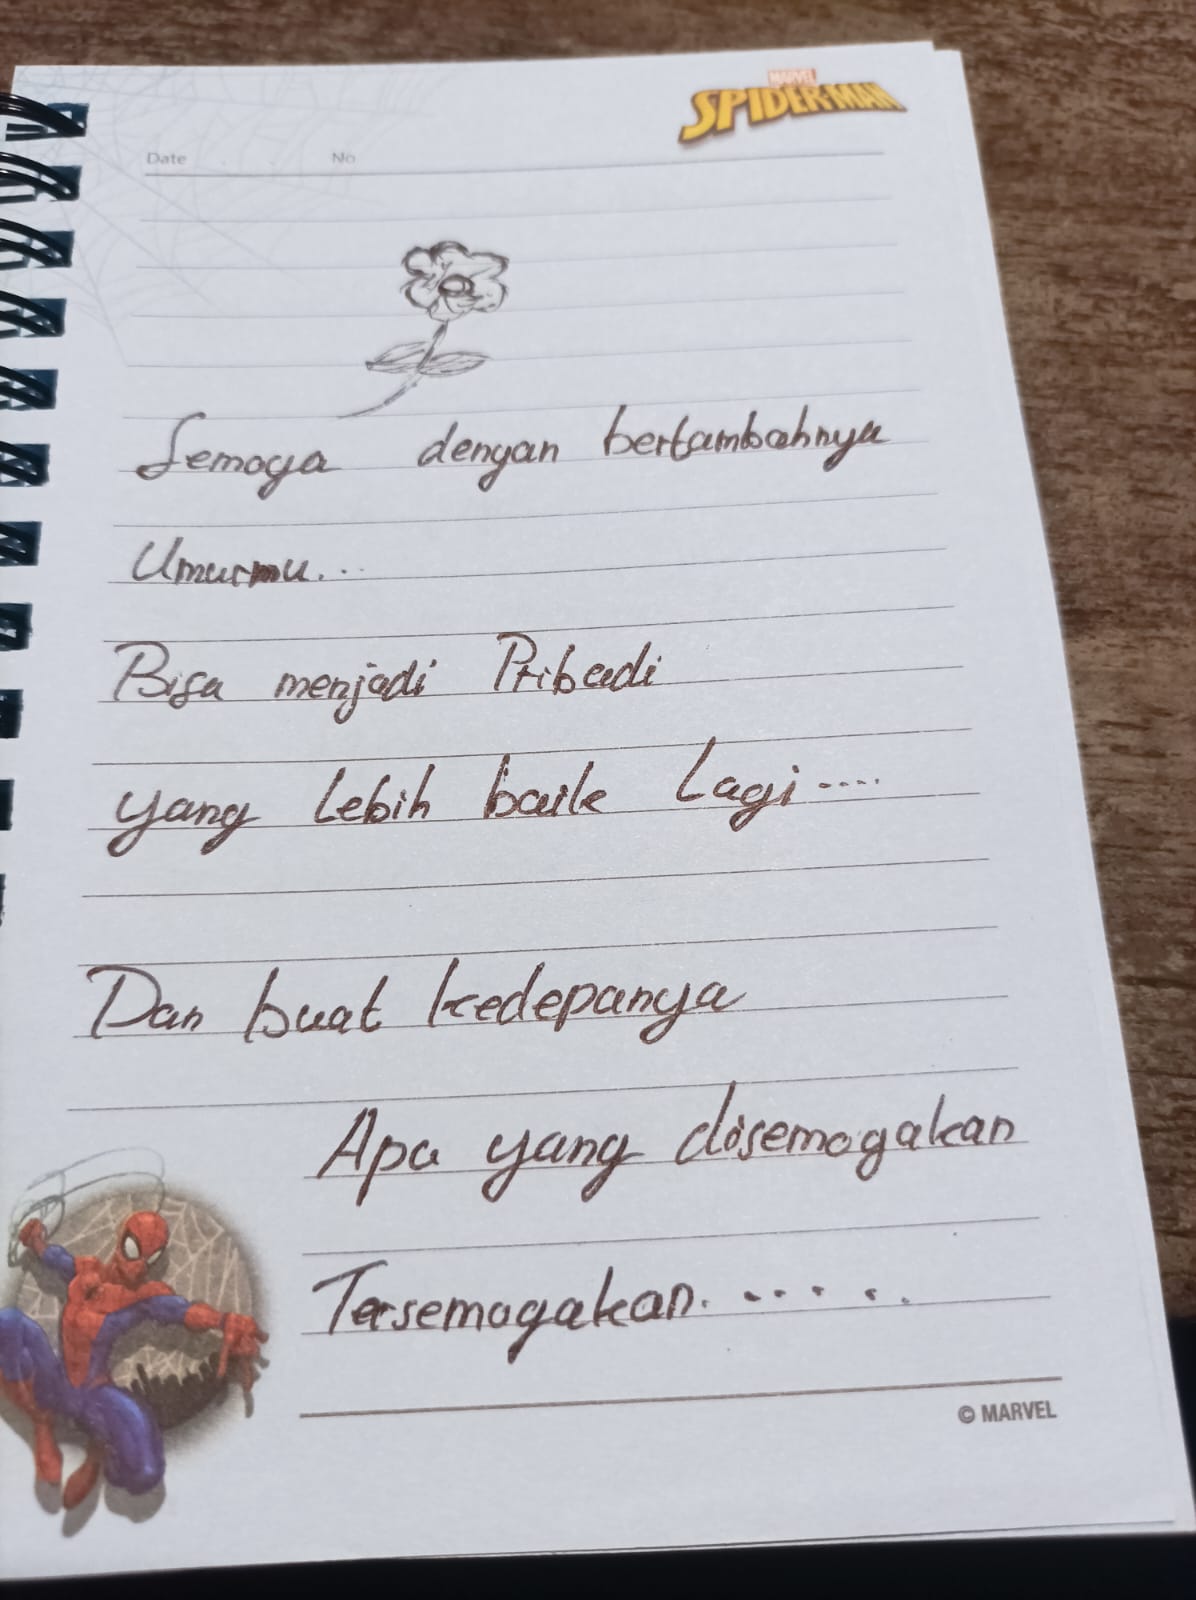 MARVEL
SPIDER-MAN
Date . . No
Semoga dengan bertambahnya
Umurmu...
Bisa menjadi Pribadi
yang Lebih baik Lagi....
Dan buat kedepanya
Apa yang disemogakan
Tersemogakan. . . . . . .
© MARVEL